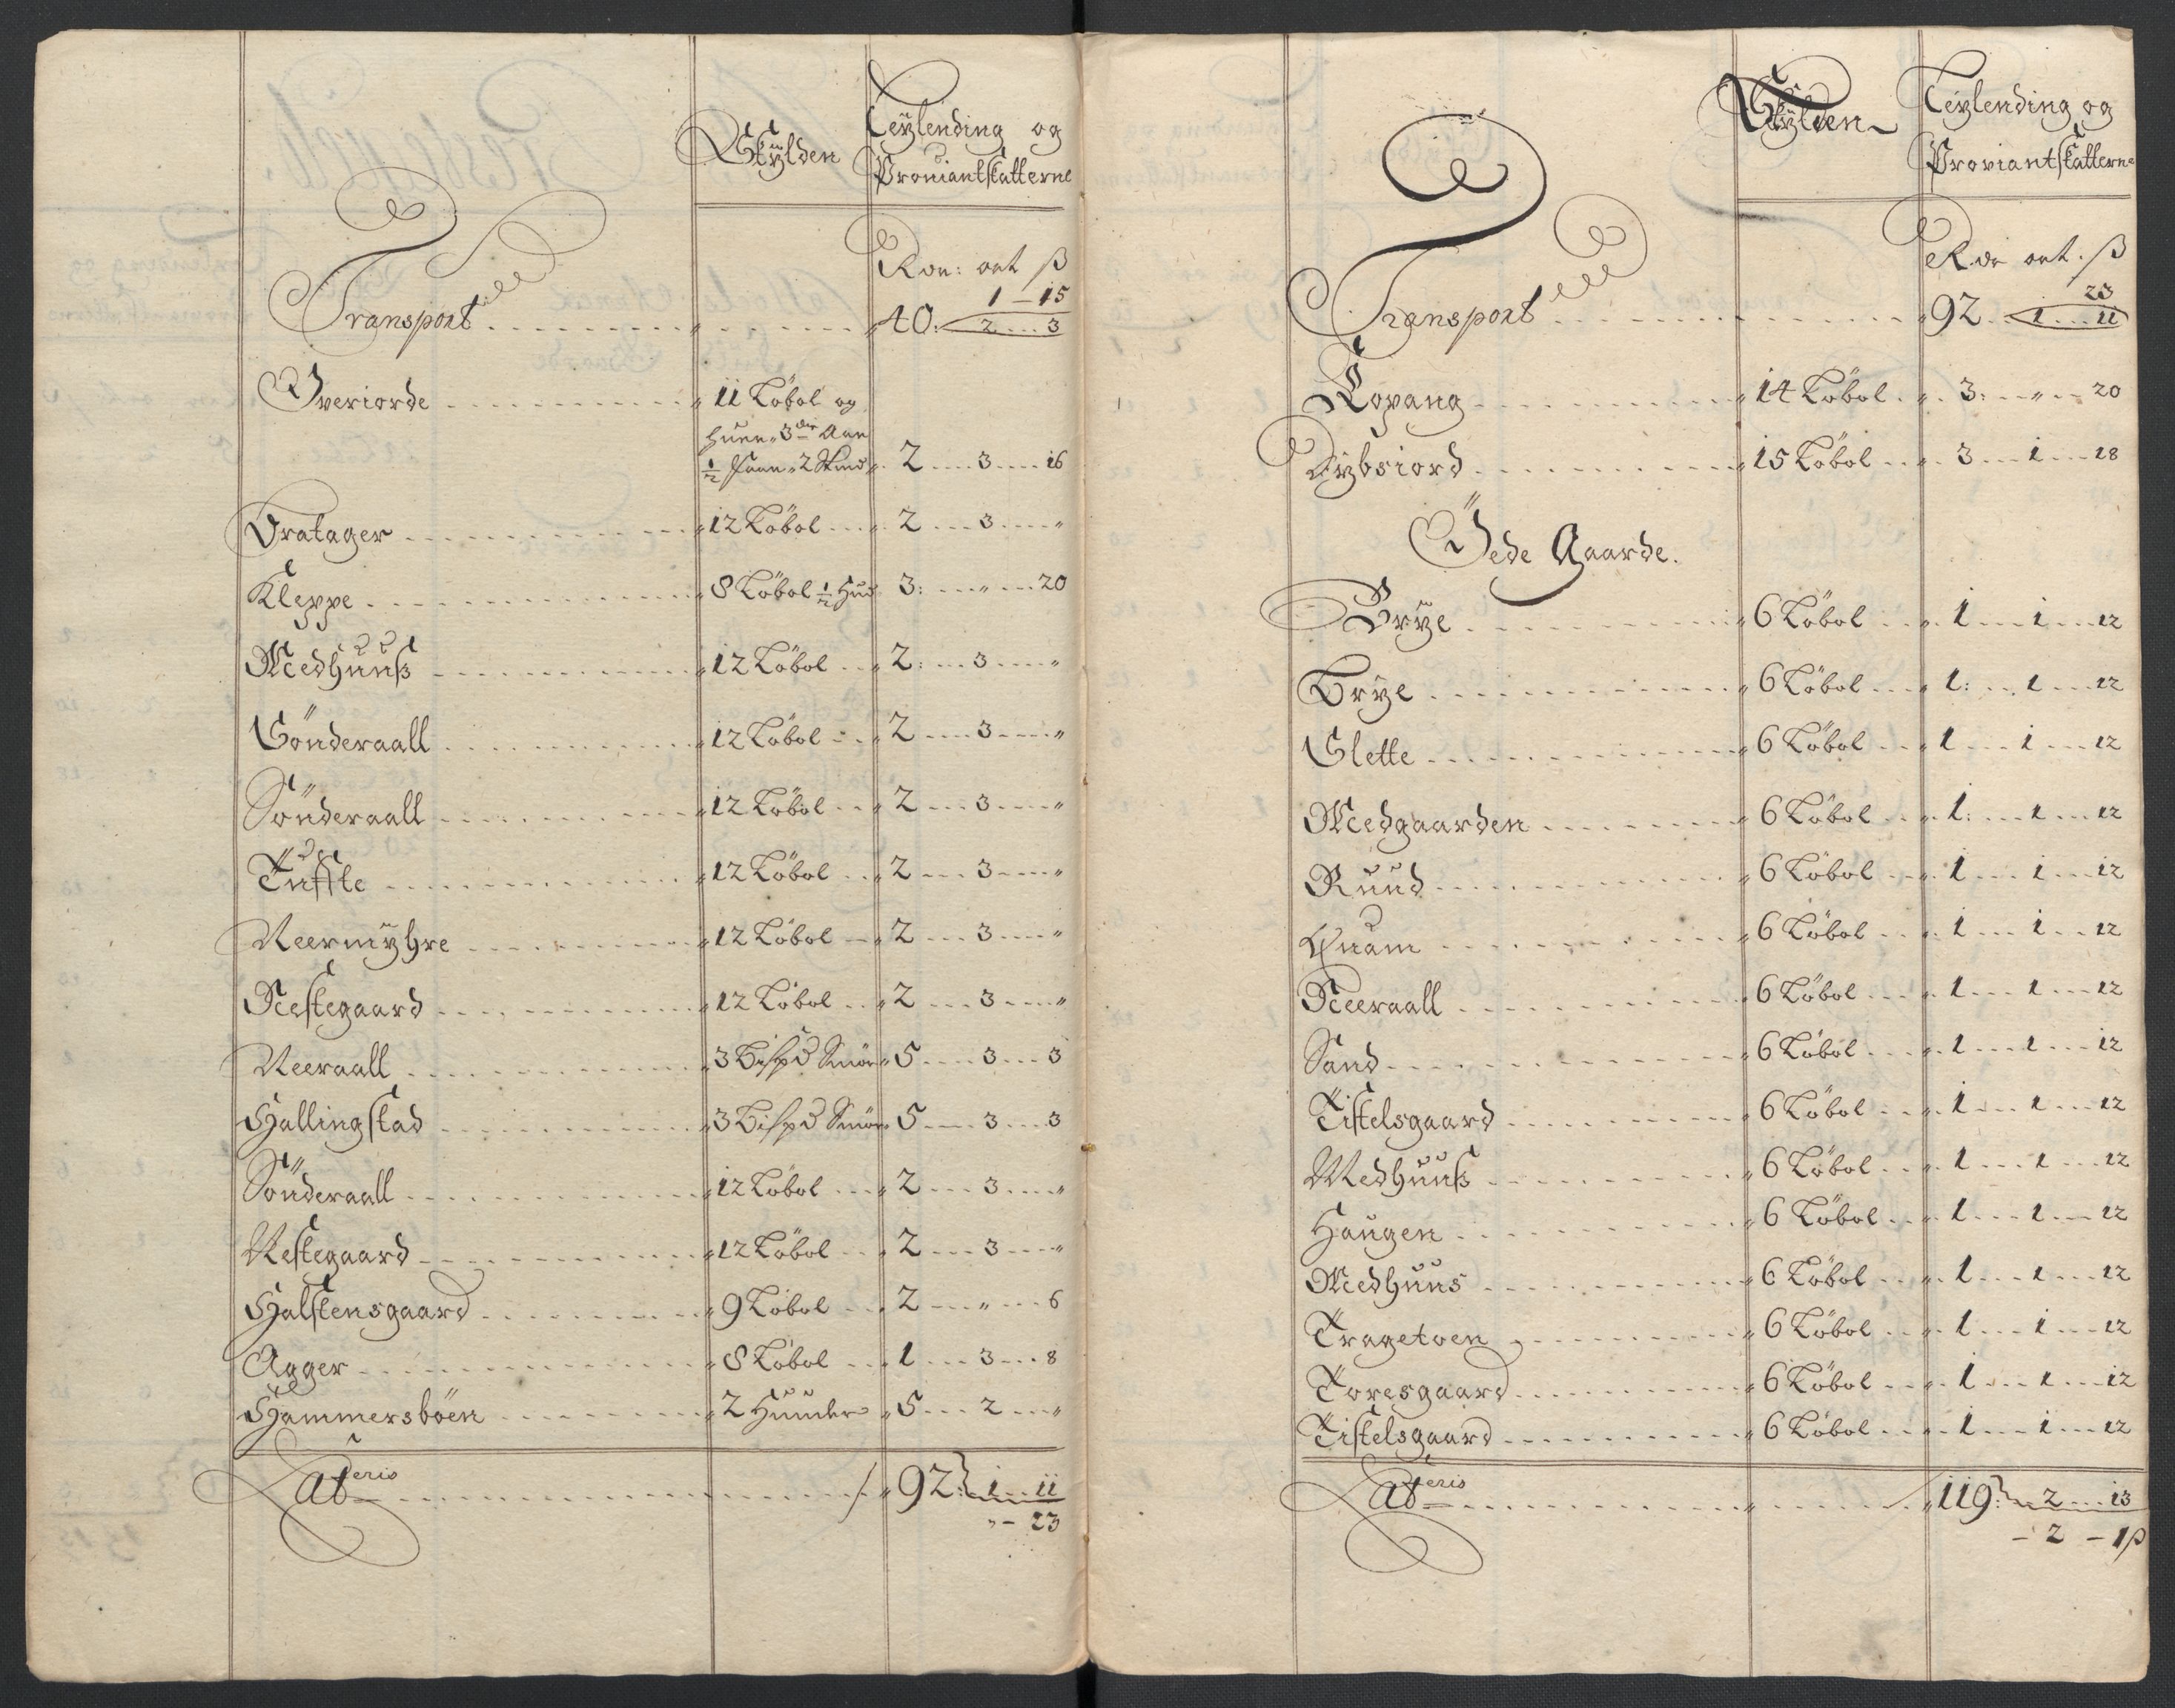 Skÿlden
Leÿlending og
Proviantskatterne
Rdr: ort ß
1 - 15
Transport " 40: 2 3
Øveriorde " 11 Løbol og
huer 3die Aar
1/2 faar 2 Skind " 2 3 16
Øratager " 12 Løbol " 2 3 "
Kleppe " 8 Løbol 1/2 Hud 3: " 20
Medhuuß " 12 Løbol " 2: 3 "
Sönderaall " 12 Löbol " 2 3 "
Sönderaall " 12 Löbol " 2 3 "
Tuffte " 12 Löbol " 2 3 "
Neermÿhre " 12 Löbol " 2 3 "
Nestegaard " 12 Löbol " 2 3 "
Neeraall " 3 Bispd Smör " 5 3 3
Hallingstad " 3 Bispd Smör " 5 3 3
Sönderaall " 12 Löbol " 2 3 "
Nestegaard " 12 Löbol " 2 3 "
Halstensgaard " 9 Löbol 2 " 6
Agger " 8 Löbol 1 3 8
Hammersböen " 2 Huuder " 5 2 "
Lateris " 92: 1 11
" - 23
Skÿlden
Leÿlending og
Proviantskatterne
Rdr ort. ß
23
Transport " 92 1 11
Kopang " 14 Löbol " 3: " 20
Dÿbsiord " 15 Löbol " 3 1 18
Öede Gaarde.
Brÿe " 6 Löbol " 1 1 12
Brÿe " 6 Löbol " 1: 1 12
Slette " 6 Löbol " 1 1 12
Medgaarden " 6 Löbol " 1: 1 12
Ruud " 6 Löbol " 1 1 12
Quam " 6 Löbol " 1 1 12
Neeraall " 6 Löbol " 1 1 12
Sand " 6 Löbol " 1 1 12
Tistelsgaard " 6 Löbol " 1 1 12
Medhuuß " 6 Löbol " 1 1 12
Haugen " 6 Löbol " 1 1 12
Medhuus " 6 Löbol " 1 1 12
Tragetoen " 6 Löbol " 1 1 12
Toresgaard " 6 Löbol " 1 1 12
Tistelsgaard " 6 Löbol " 1 1 12
Lateris " " 119: 2 13
- 2 - 1ß